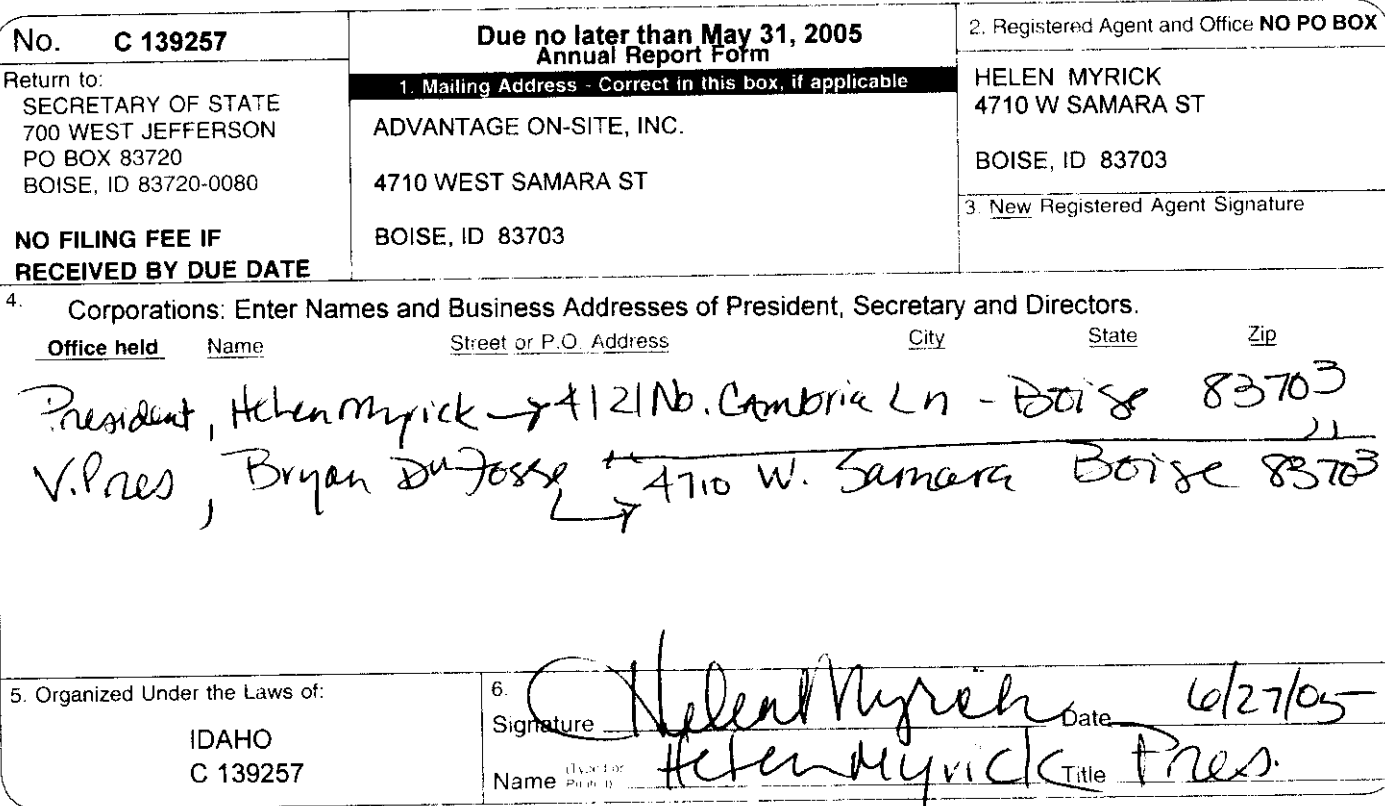 No. C 139257
Return to:
SECRETARY OF STATE
700 WEST JEFFERSON
PO BOX 83720
BOISE, ID 83720-0080
NO FILING FEE IF
RECEIVED BY DUE DATE
Due no later than May 31, 2005
Annual Report Form
1. Mailing Address - Correct in this box, if applicable
ADVANTAGE ON-SITE, INC.
4710 WEST SAMARA ST
BOISE, ID 83703
2. Registered Agent and Office NO PO BOX
HELEN MYRICK
4710 W SAMARA ST
BOISE, ID 83703
3. New Registered Agent Signature
4. Corporations: Enter Names and Business Addresses of President, Secretary and Directors.
Office held Name Street or P.O. Address City State Zip
President, Helen Myrick → 4121 No. Cambria Ln - Boise 83703
V.Pres, Bryan DuFosse → 4710 W. Samara Boise 83703
5. Organized Under the Laws of:
IDAHO
C 139257
6.
Signature Helen Myrick Date 6/27/05
Name Helen Myrick Title Pres.